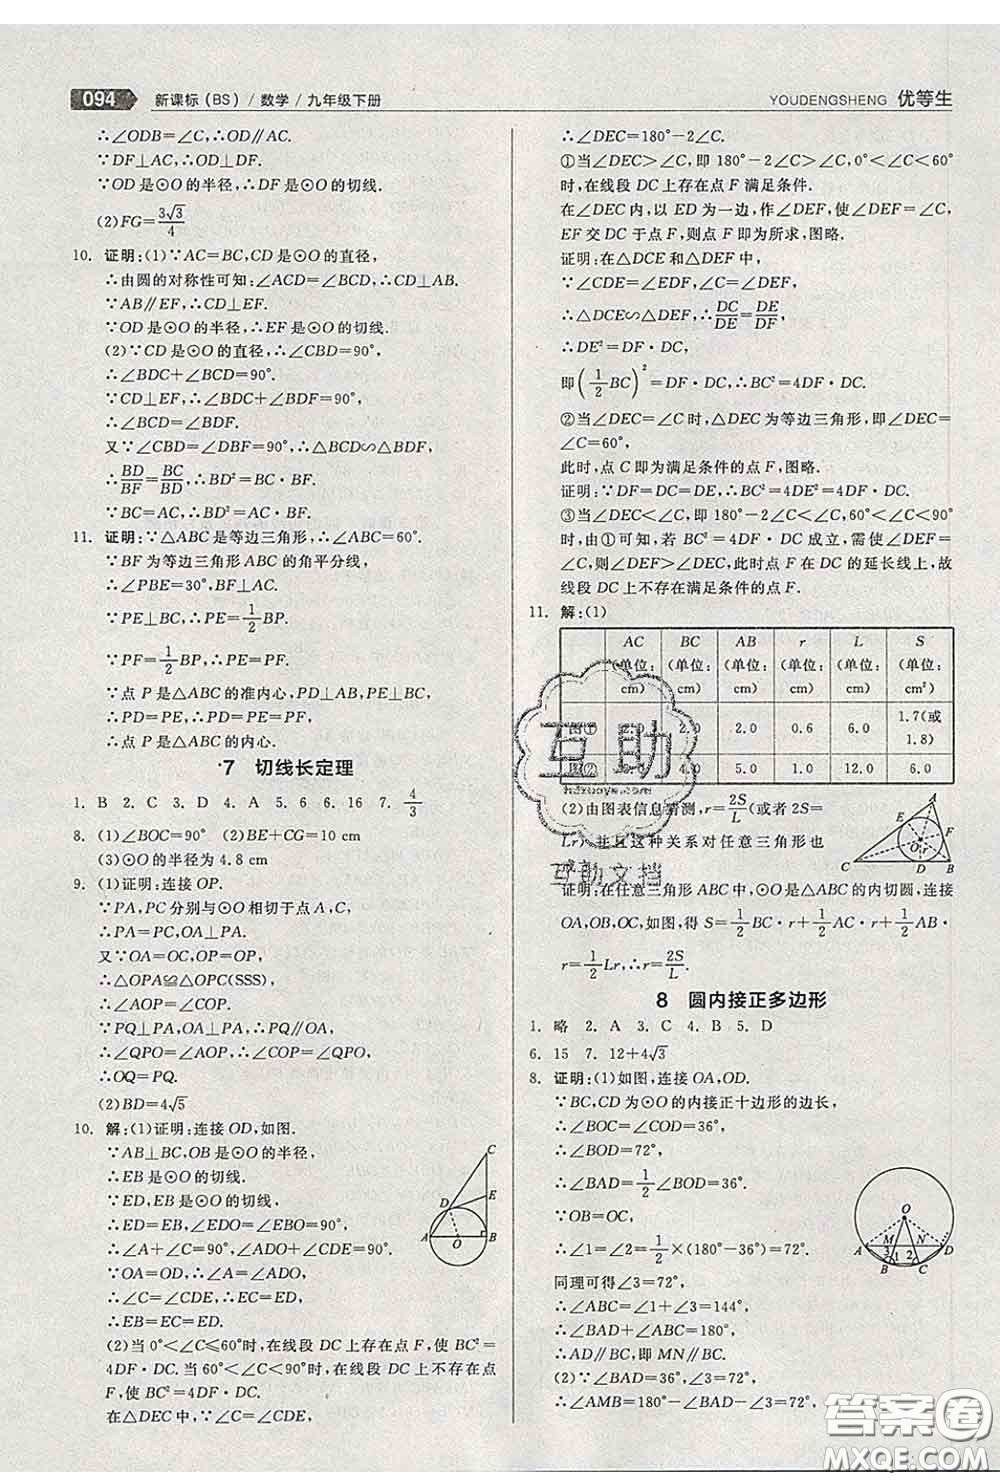 094 新课标(BS)/数学/九年级下册
YOUDENGSHENG 优等生
∴∠ODB=∠C,∴OD∥AC.
∵DF⊥AC,∴OD⊥DF.
∵OD是⊙O的半径,∴DF是⊙O的切线.
(2)FG=3√3/4
10. 证明:(1)∵AC=BC,CD是⊙O的直径,
∴由圆的对称性可知:∠ACD=∠BCD,CD⊥AB.
∵AB∥EF,∴CD⊥EF.
∵OD是⊙O的半径,∴EF是⊙O的切线.
(2)∵CD是⊙O的直径,∴∠CBD=90°,
∴∠BDC+∠BCD=90°.
∵CD⊥EF,∴∠BDC+∠BDF=90°.
∴∠BCD=∠BDF.
又∵∠CBD=∠DBF=90°,∴△BCD∽△BDF.
∴BD/BF=BC/BD,∴BD²=BC·BF.
∵BC=AC,∴BD²=AC·BF.
11. 证明:∵△ABC是等边三角形,∴∠ABC=60°.
∵BF为等边三角形ABC的角平分线,
∴∠PBE=30°,BF⊥AC.
∵PE⊥BC,∴PE=1/2BP.
∵PF=1/2BP,∴PE=PF.
∵点P是△ABC的准内心,PD⊥AB,PE⊥BC,
∴PD=PE,∴PD=PE=PF.
∴点P是△ABC的内心.
*7 切线长定理
1. B 2. C 3. D 4. A 5. 6 6. 16 7. 4/3
8. (1)∠BOC=90° (2)BE+CG=10 cm
(3)⊙O的半径为4.8 cm
9. (1)证明:连接OP.
∵PA,PC分别与⊙O相切于点A,C,
∴PA=PC,OA⊥PA.
又∵OA=OC,OP=OP,
∴△OPA≌△OPC(SSS),
∴∠AOP=∠COP.
∵PQ⊥PA,OA⊥PA,∴PQ∥OA,
∴∠QPO=∠AOP,∴∠QPO=∠COP,
∴OQ=PQ.
(2)BD=4√5
10. 解:(1)证明:连接OD,如图.
∵AB⊥BC,OB是⊙O的半径,
∴EB是⊙O的切线.
∵ED,EB是⊙O的切线,
∴ED=EB,∠ADO+∠CDE=90°,
∴∠A+∠C=90°,∴∠ADO+∠CDE=∠A+∠C.
∵OA=OD,∴∠A=∠ADO,
∴∠C=∠CDE,∴ED=EC,
∴EB=EC.
(2)当0°<∠C≤60°时,在线段DC上存在点F,使BC²=
4DF·DC.当60°<∠C<90°时,在线段DC上不存在点
F,使BC²=4DF·DC.
在△DEC中,∵∠C=∠CDE,
∴∠DEC=180°-2∠C.
①当∠DEC>∠C,即180°-2∠C>∠C,0°<∠C<60°
时,在线段DC上存在点F满足条件.
在∠DEC内,以ED为一边,作∠DEF,使∠DEF=∠C,
EF交DC于点F,则点F即为所求,图略.
证明:在△DCE和△DEF中,
∵∠CDE=∠EDF,∠C=∠DEF,
∴△DCE∽△DEF,∴DC/DE=DE/DF,
∴DE²=DF·DC,
即(1/2BC)²=DF·DC,∴BC²=4DF·DC.
②当∠DEC=∠C时,△DEC为等边三角形,即∠DEC=
∠C=60°,
此时,点C即为满足条件的点F,图略.
证明:∵DF=DC=DE,∴BC²=4DE²=4DF·DC.
③当∠DEC<∠C,即180°-2∠C<∠C,60°<∠C<90°
时,由①可知,若BC²=4DF·DC成立,需使∠DEF=
∠C,则∠DEF>∠DEC,此时点F在DC的延长线上,故
线段DC上不存在满足条件的点F.
11. 解:(1)
AC(单位:cm) BC(单位:cm) AB(单位:cm) r(单位:cm) L(单位:cm) S(单位:cm²)
2.0 2.0 0.6 6.0 1.7(或1.8)
4.0 5.0 1.0 12.0 6.0
(2)由图表信息猜测,r=2S/L(或者2S=
Lr),并且这种关系对任意三角形也
成立.
证明:在任意三角形ABC中,⊙O是△ABC的内切圆,连接
OA,OB,OC,如图,得S=1/2BC·r+1/2AC·r+1/2AB·
r=1/2Lr,∴r=2S/L.
A E F O r C D B
8 圆内接正多边形
1. 略 2. A 3. C 4. B 5. D
6. 15 7. 12+4√3
8. 证明:(1)如图,连接OA,OD.
∵BC,CD为⊙O的内接正十边形的边长,
∴∠BOC=∠COD=36°,
∴∠BOD=72°,
∴∠BAD=1/2∠BOD=36°.
∵OB=OC,
∴∠1=∠2=1/2×(180°-36°)=72°.
同理可得∠3=72°,
∴∠ABC=∠1+∠3=144°,
∴∠BAD+∠ABC=180°,
∴AD∥BC,即MN∥BC.
(2)∵∠BAD=36°,∠3=72°,
∴∠AMB=180°-∠BAD-∠3=72°,
C D E A O B
O A M N D 3 1 2 B C
互助
hdzuoye.com
互助文档
答案圈
MXQE.COM